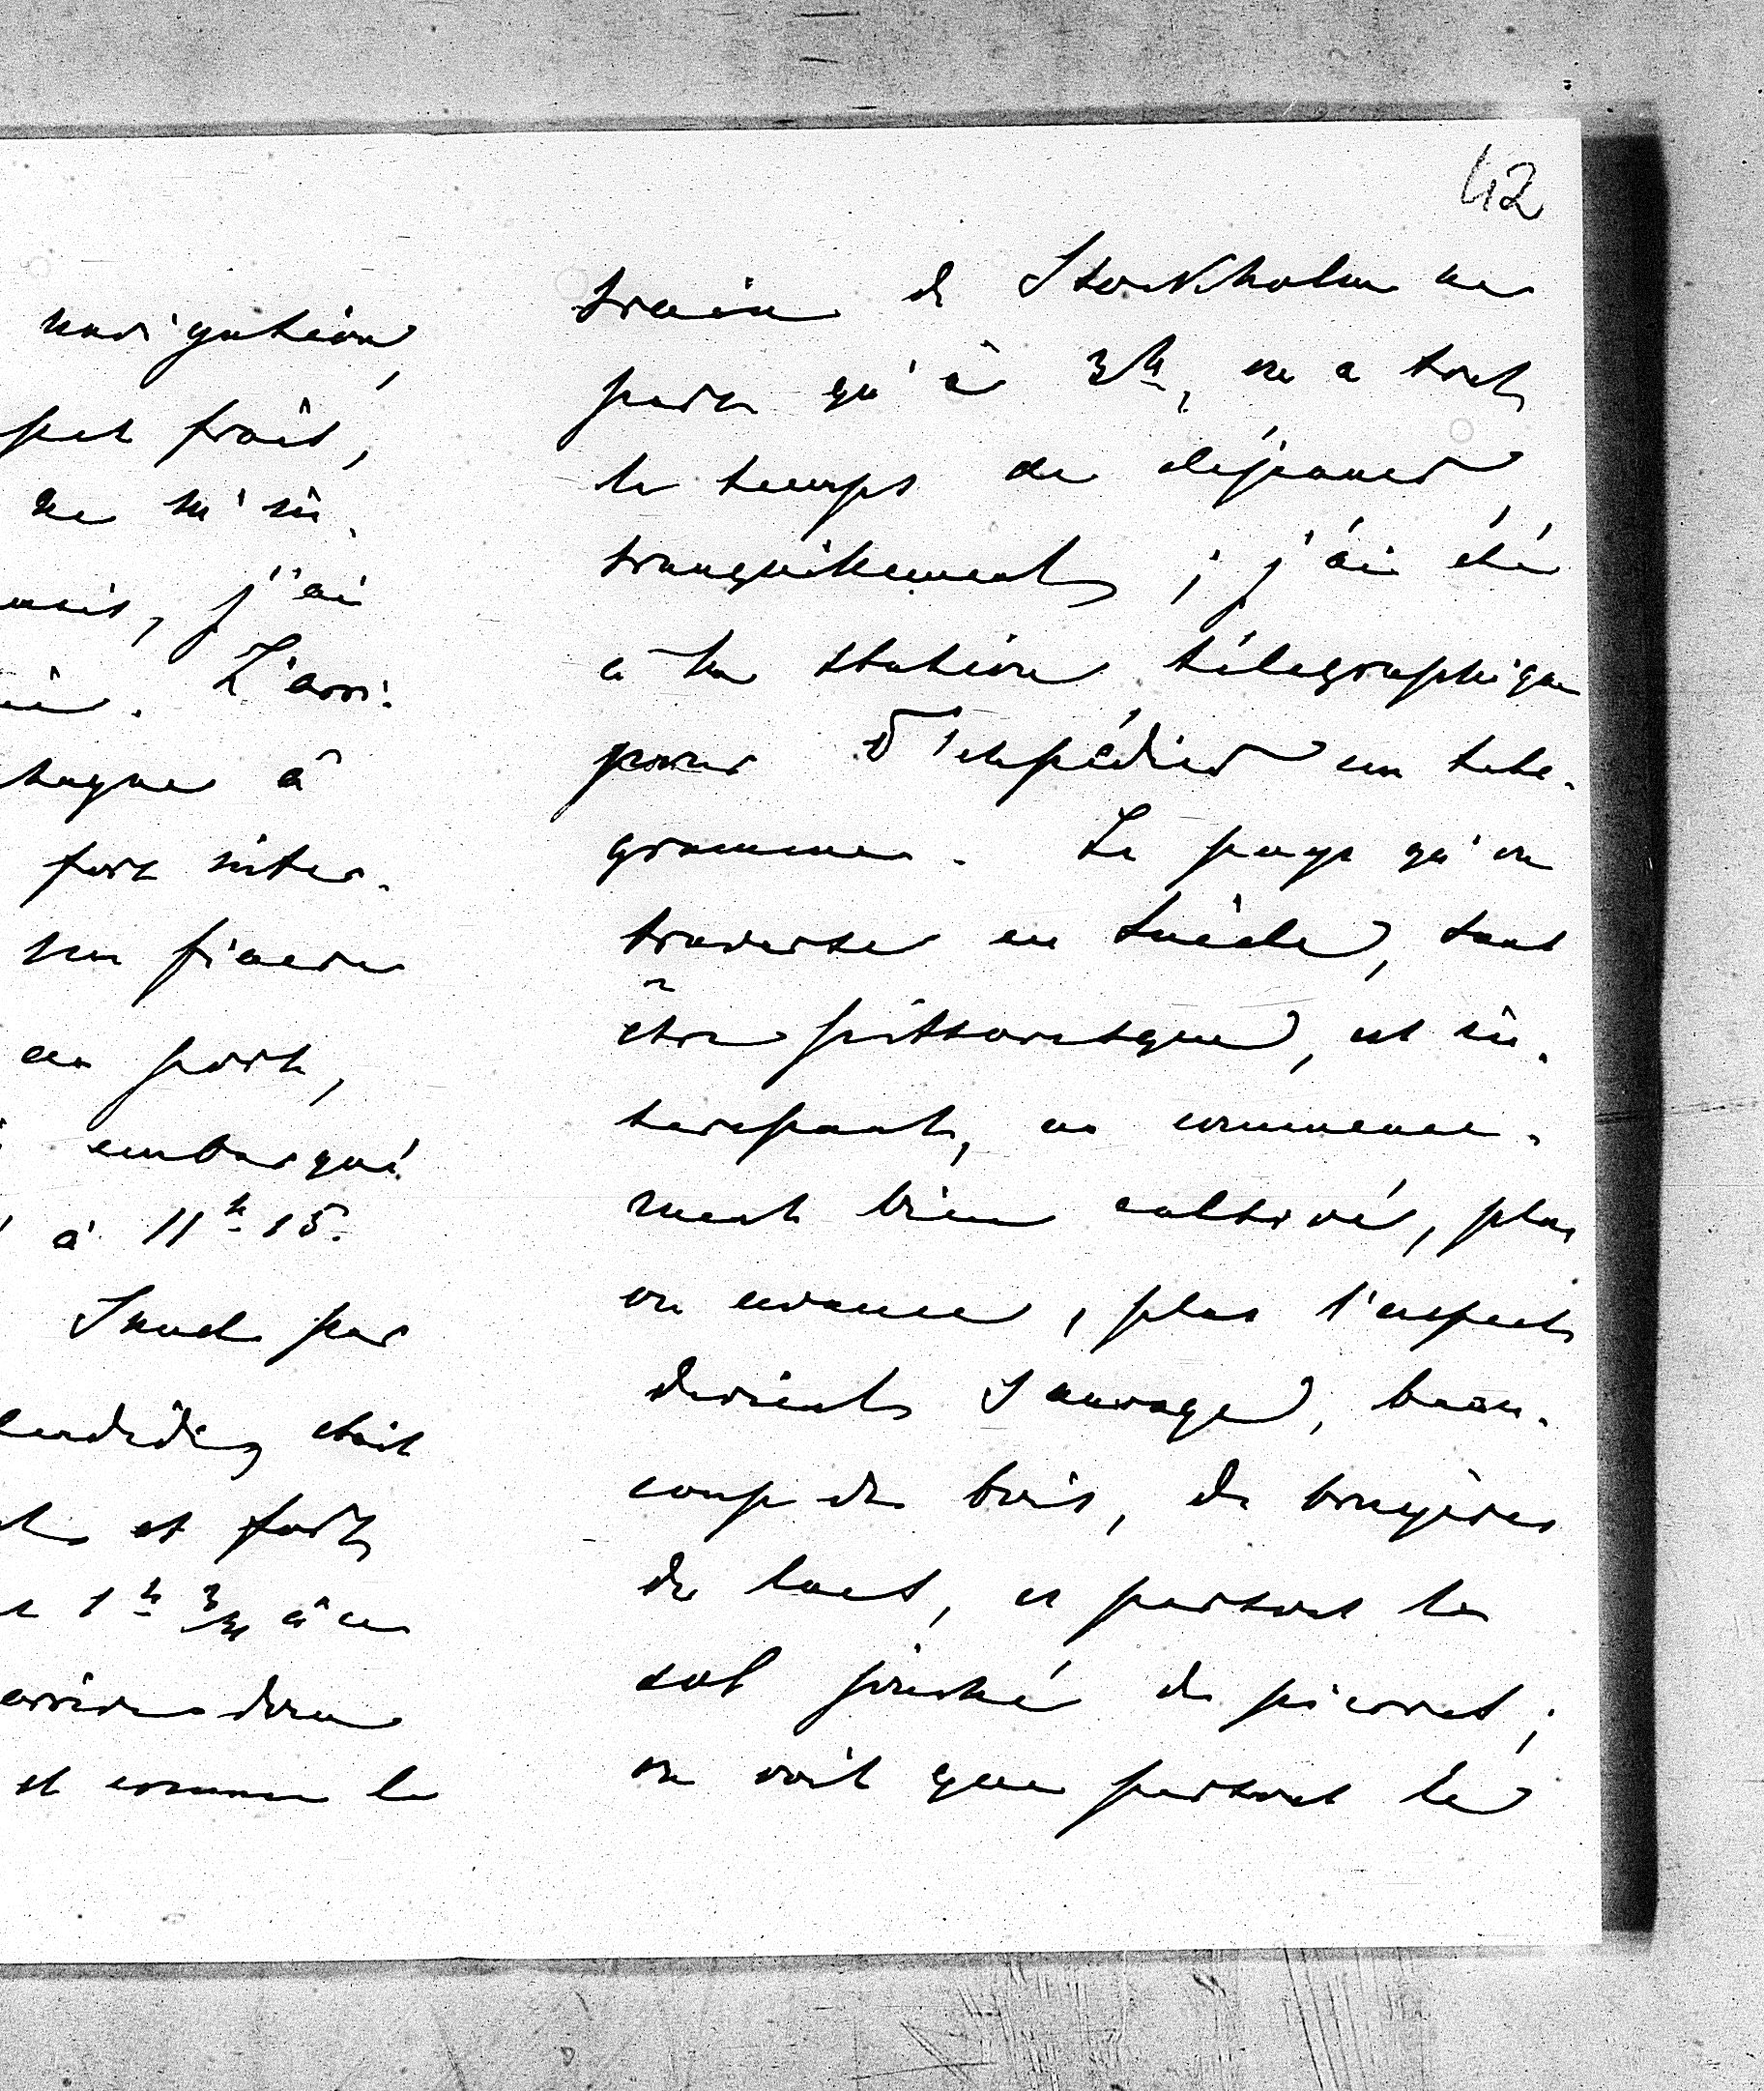 navigation,
pet frais,
ne m'in-
mais, j'ai
L'arri-
hague à
fort inter-
un fiacre
au port,
embarqué
à 11h 15.
Sund par
splendide, était
et fort
1h 3/4 à ce
arrive dans
et comme le
42
train de Stockholm ne
part qu'à 3h, on a tout
le temps de déjeuner
tranquillement ; j'ai été
à la station télégraphique
pour t'expédier un télé-
gramme. Le pays qu'on
traverse en Suède, sans
être pittoresque, est in-
teressant, au commence-
ment bien cultivé, plus
on avance, plus l'aspect
devient sauvage, beau-
coup de bois, de bruyères
de lacs, et partout le
sol jonché de pierres ;
on voit que partout le